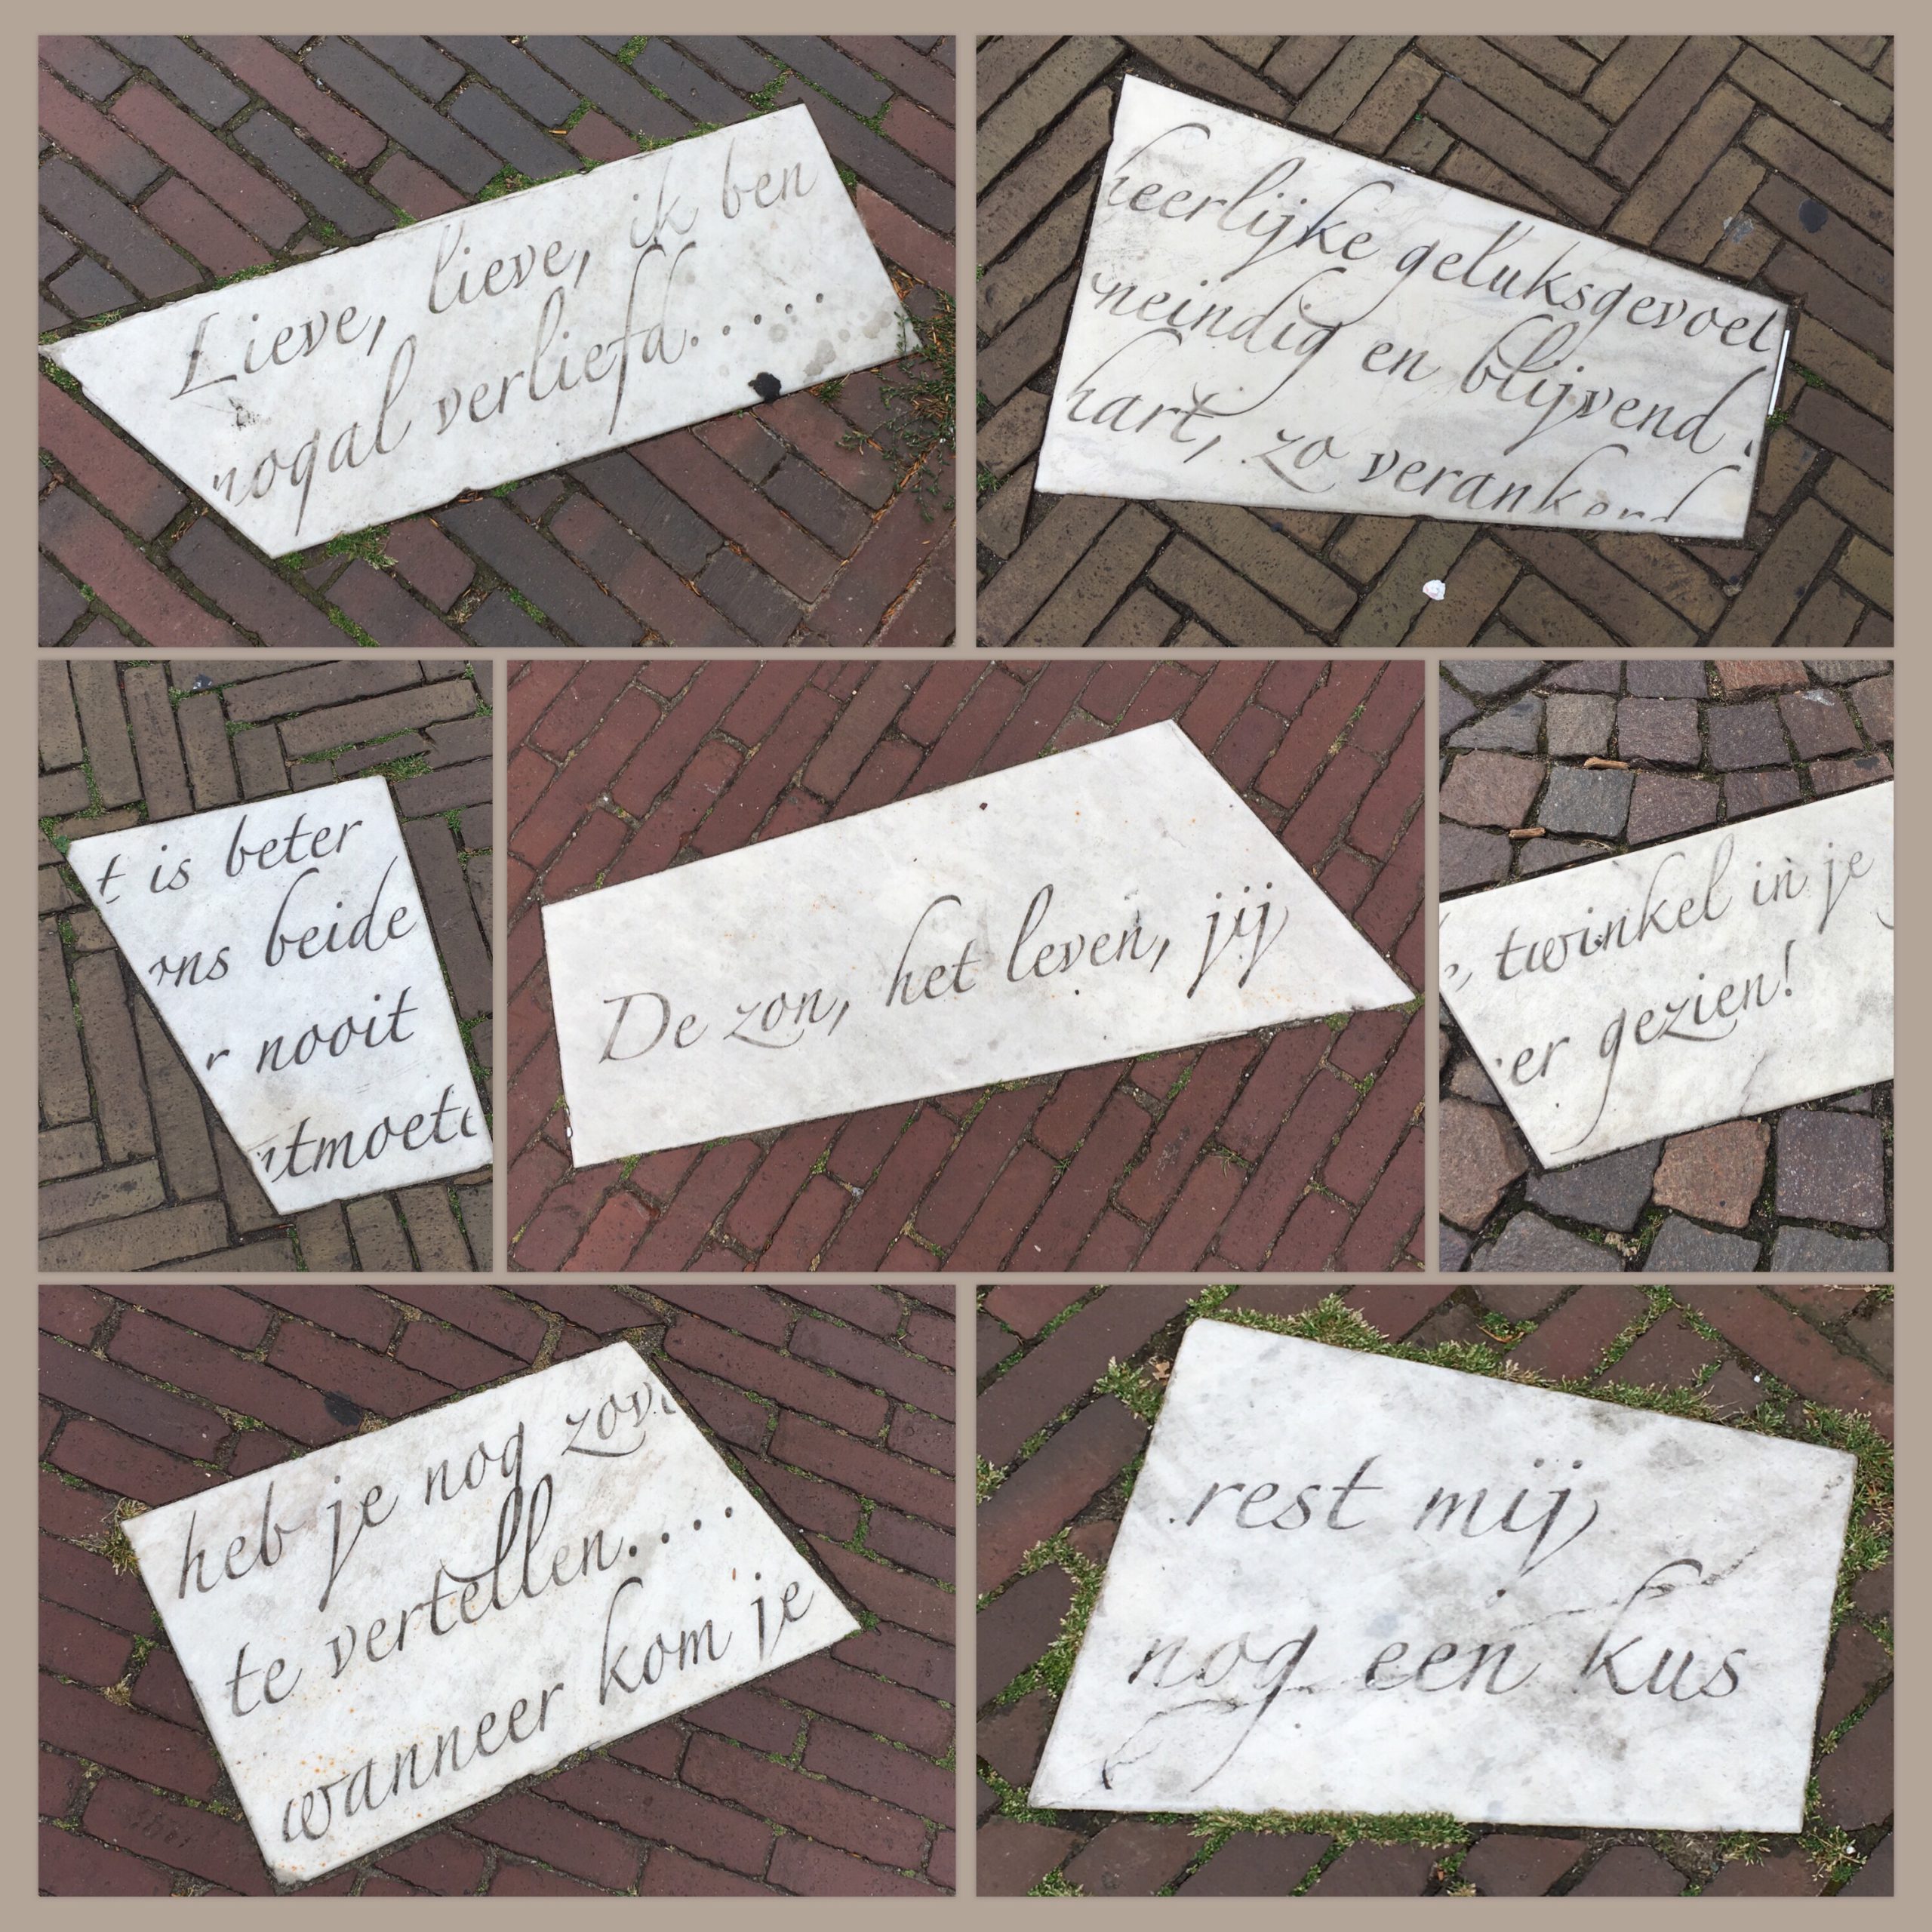 Lieve, lieve, ik ben
nogal verliefd.....
heerlijke geluksgevoel
neindig en blijvend
hart, zo verankerd
t is beter
ons beide
r nooit
ntmoete
De zon, het leven, jij
twinkel in je
er gezien!
heb je nog zove
te vertellen....
wanneer kom je
rest mij
nog een kus